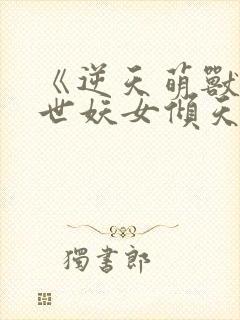 《逆天萌獸
世妖女傾天
獨書郎